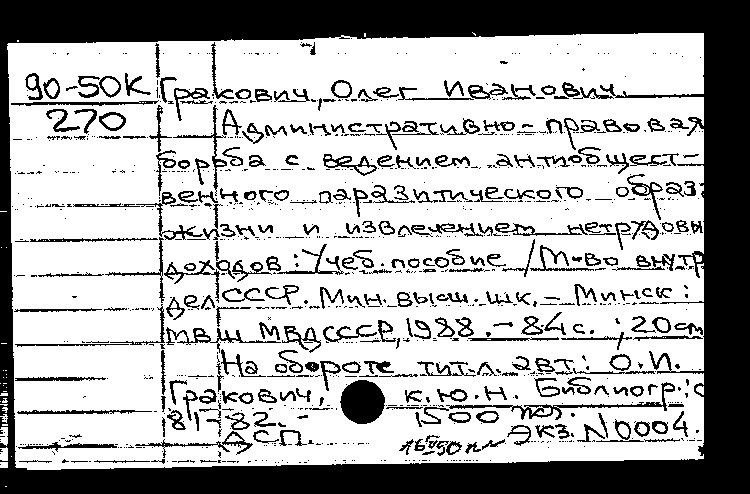 90-50К Гракович, Олег Иванович.
270 Административно-правовая
борьба с ведением антиобщест-
венного паразитического образ
жизни и извлечением нетрудовы
доходов: Учеб. пособие / М-во внутр
дел СССР. Мин. высш. шк. - Минск:
МВШ МВД СССР, 1988. - 84 с. ; 20 см
На обороте тит. л. авт.: О.И.
Гракович, к.ю.н. Библиогр.: с
81-82. - 1500
ДСП. Экз. N0004.